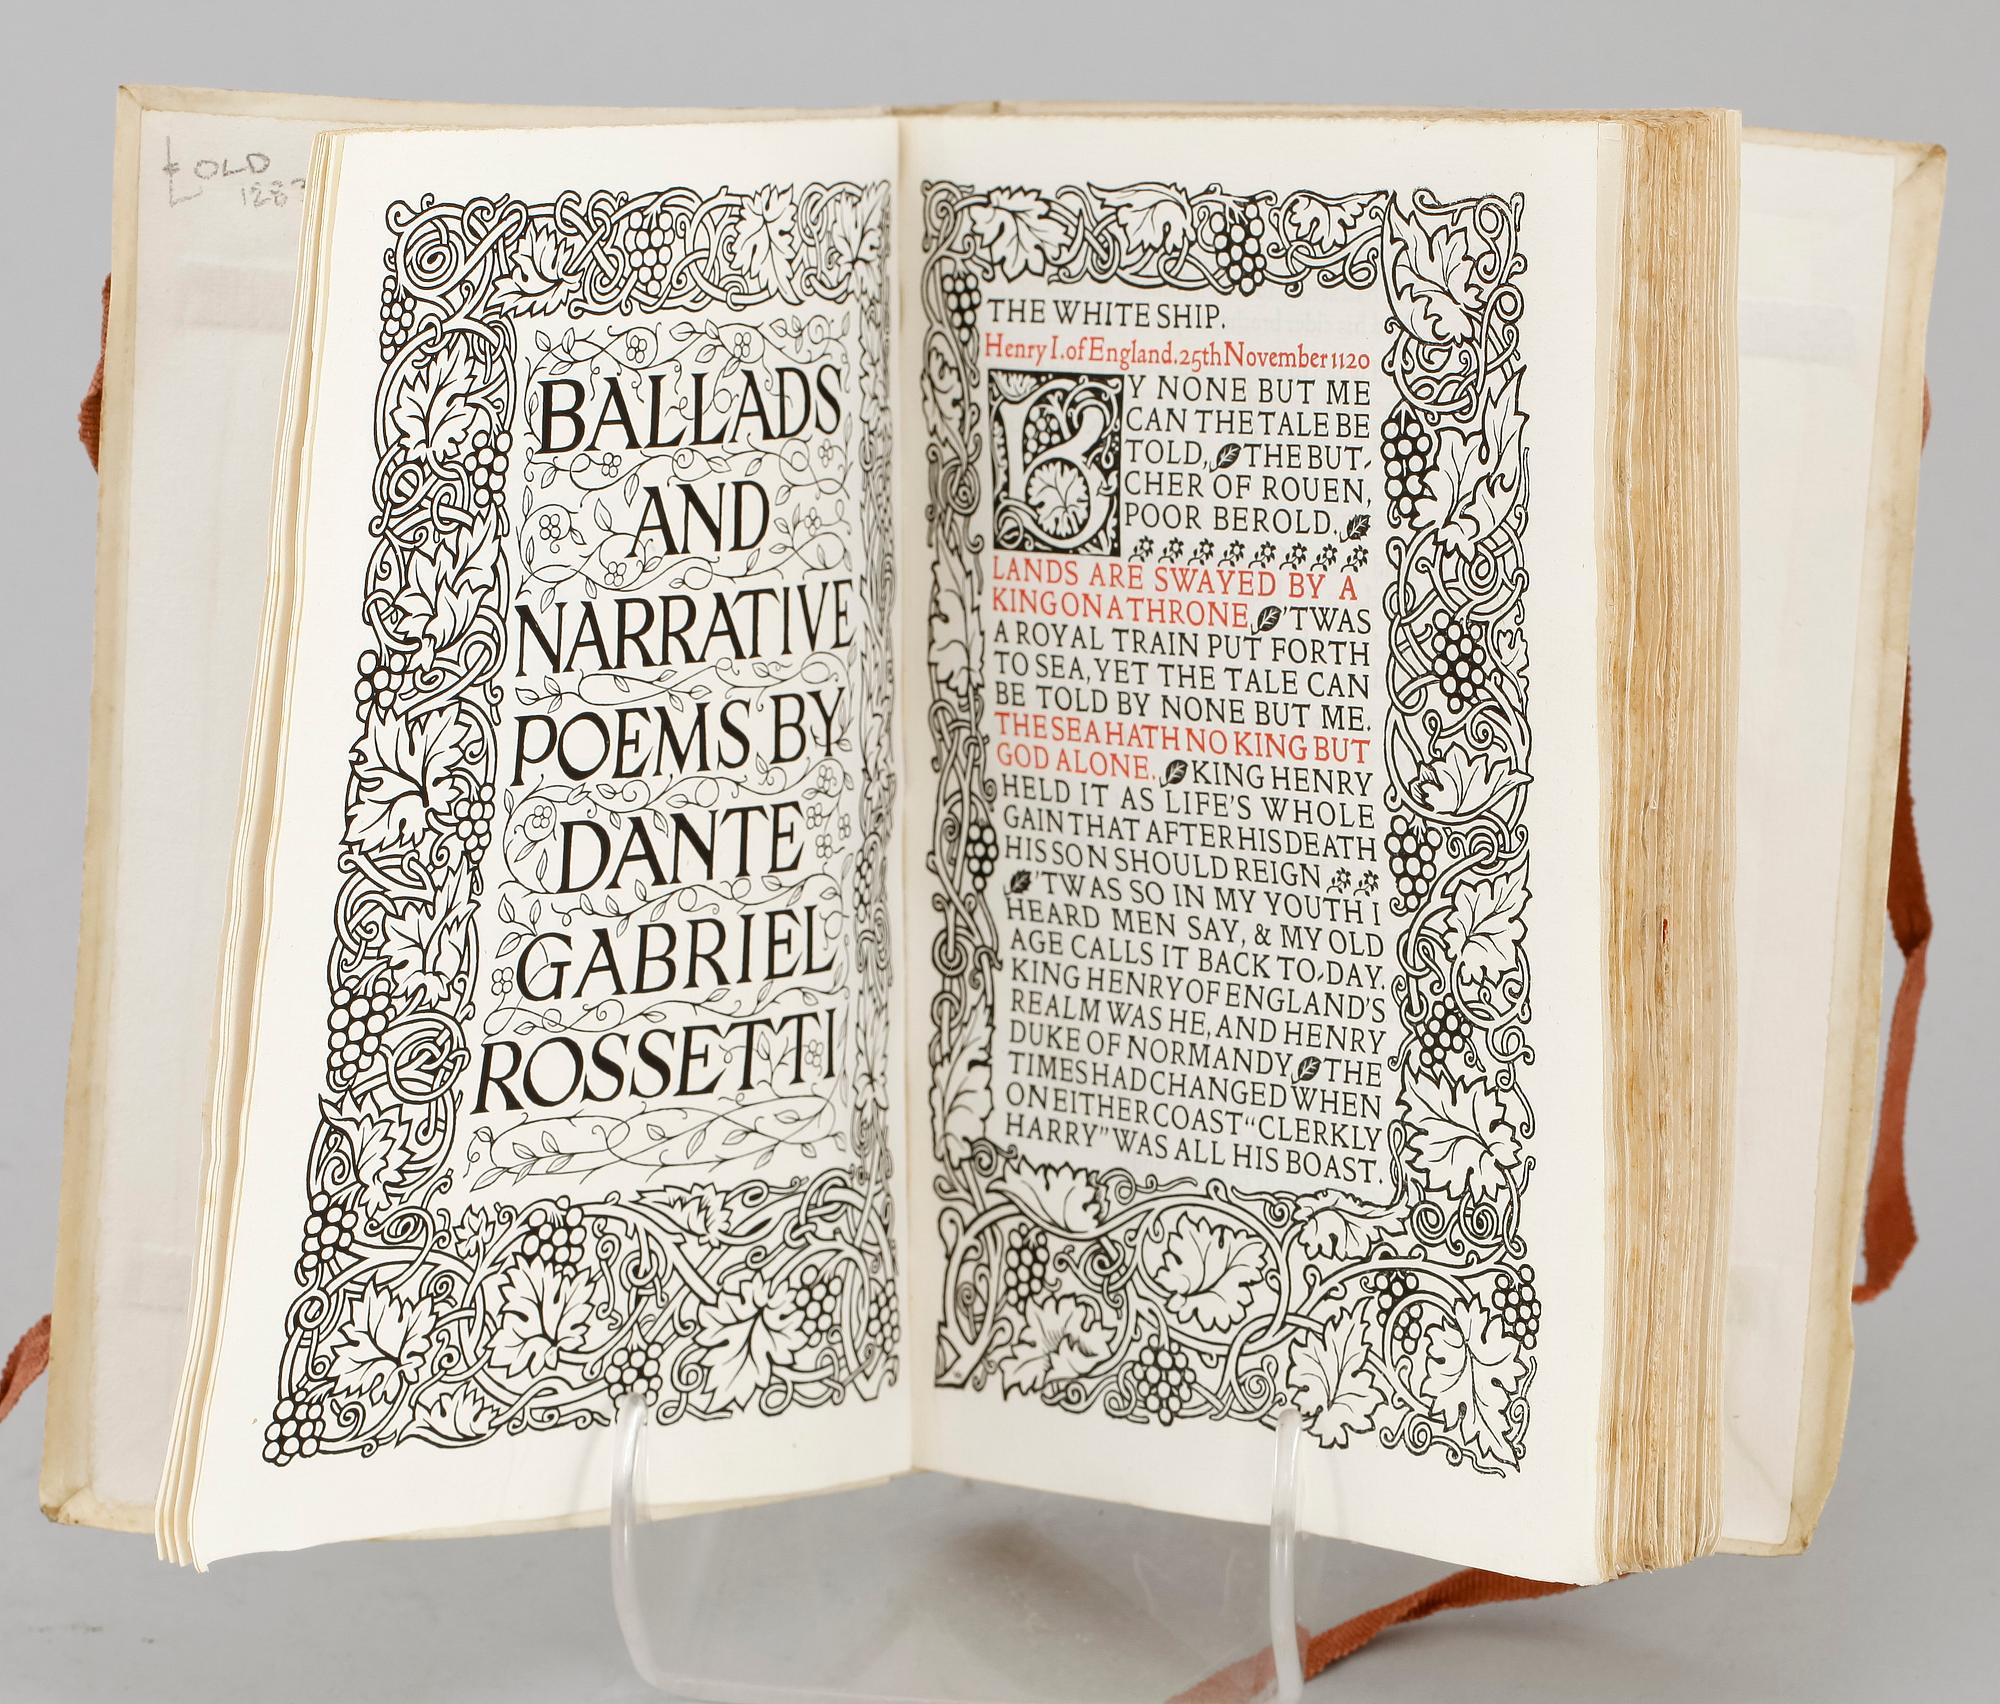 OLD
BALLADS
AND
NARRATIVE
POEMS BY
DANTE
GABRIEL
ROSSETTI
THE WHITE SHIP.
Henry I. of England. 25th November 1120
BY NONE BUT ME
CAN THE TALE BE
TOLD, THE BUT-
CHER OF ROUEN,
POOR BEROLD.
LANDS ARE SWAYED BY A
KING ON A THRONE. 'TWAS
A ROYAL TRAIN PUT FORTH
TO SEA, YET THE TALE CAN
BE TOLD BY NONE BUT ME.
THE SEA HATH NO KING BUT
GOD ALONE. KING HENRY
HELD IT AS LIFE'S WHOLE
GAIN THAT AFTER HIS DEATH
HIS SON SHOULD REIGN
'TWAS SO IN MY YOUTH I
HEARD MEN SAY, & MY OLD
AGE CALLS IT BACK TO-DAY.
KING HENRY OF ENGLAND'S
REALM WAS HE, AND HENRY
DUKE OF NORMANDY. THE
TIMES HAD CHANGED WHEN
ON EITHER COAST "CLERKLY
HARRY" WAS ALL HIS BOAST.